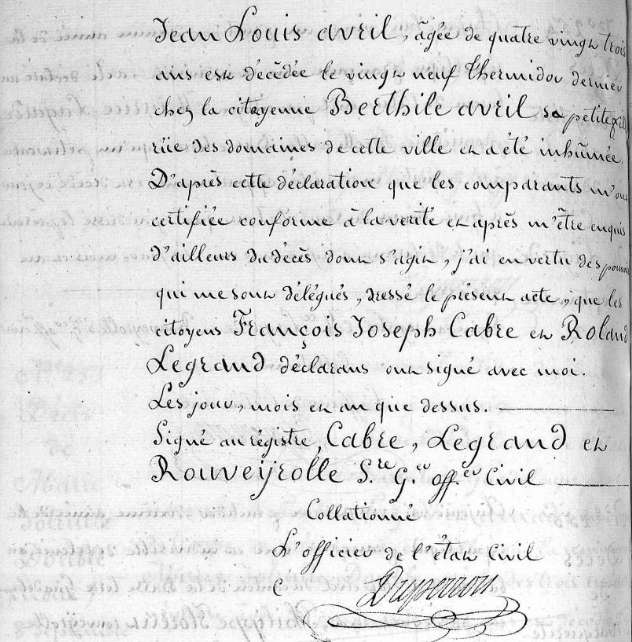 Jean Louis avril, âgée de quatre vingt trois
ans est décédée le vingt neuf thermidor dernier
chez la citoyenne Berthile avril sa petite fille
rüe des domaines de cette ville et a été inhumée.
D'après cette déclaration que les comparants m'ont
certifiée conforme à la verité et après m'être enquis
d'ailleurs du décès dont s'agit, j'ai en vertu des pouvoirs
qui me sont délégués, dressé le présent acte, que les
citoyens François Joseph Cabre et Roland
Legrand déclarans ont signé avec moi.
Les jour, mois et an que dessus.
Signé au régistre, Cabre, Legrand et
Rouveyrolle S.re G.ce off.er Civil
Collationné
L'officier de l'état Civil